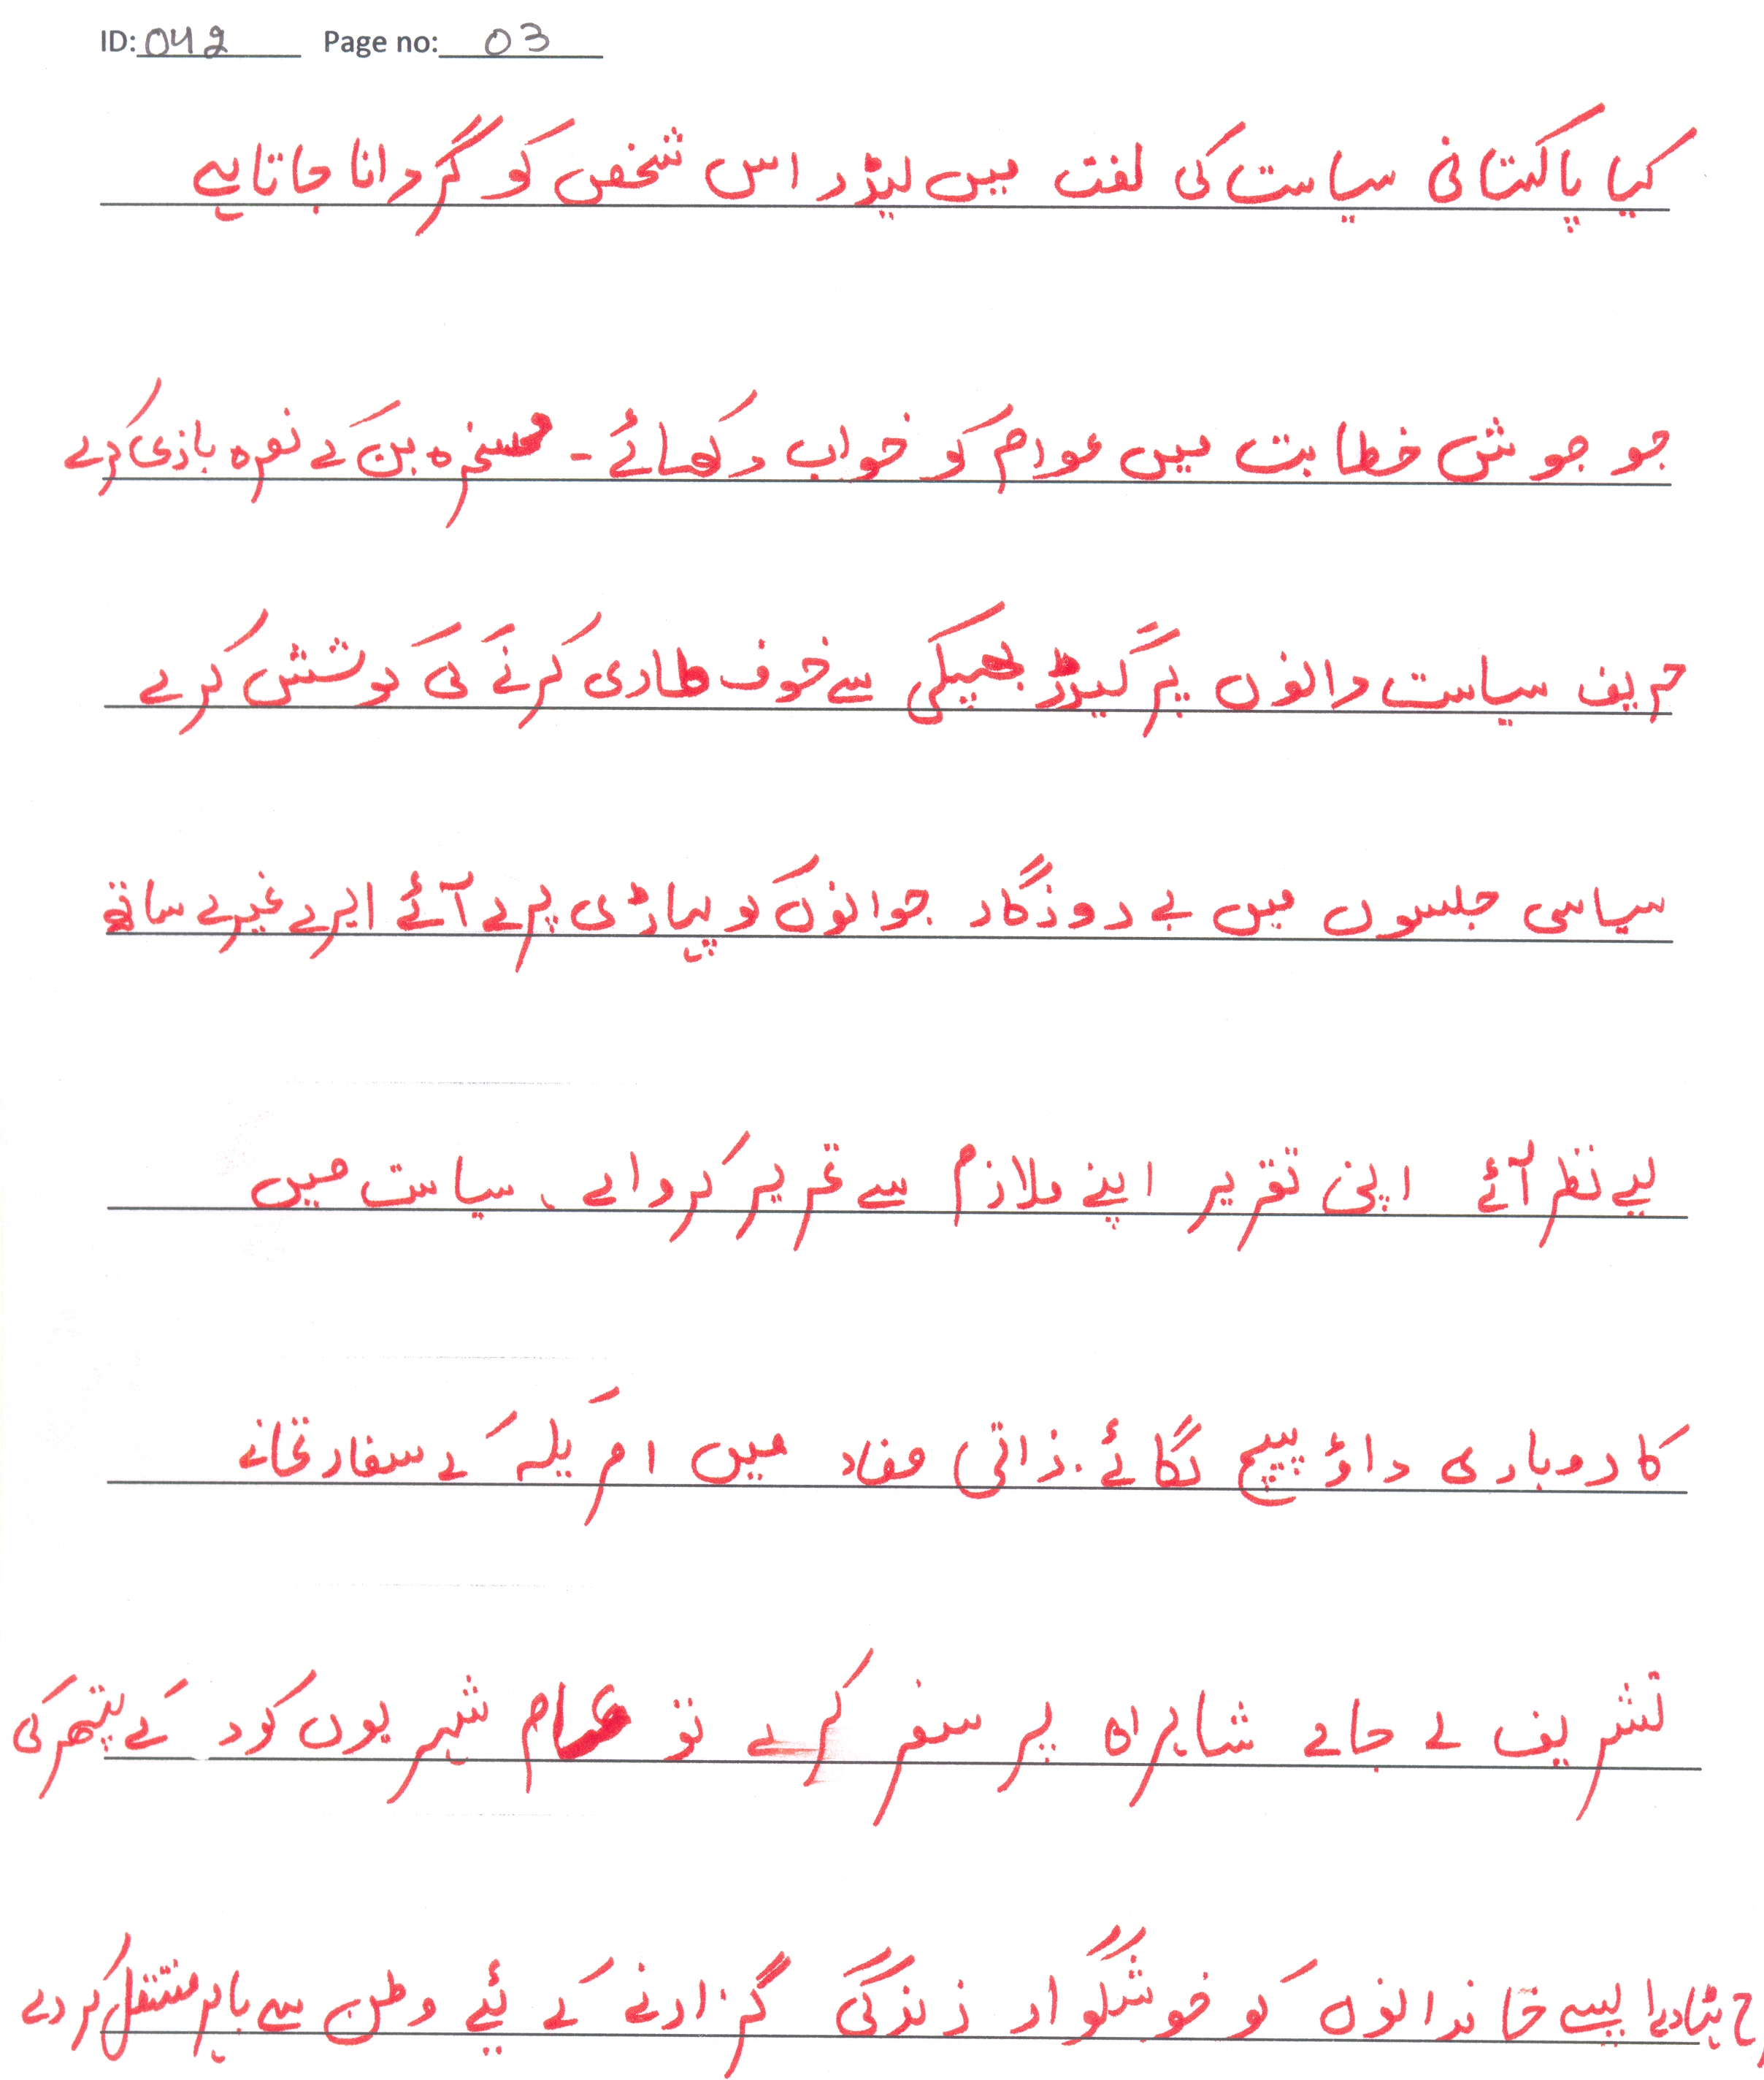 ID: 042 Page no: 03
کیا پاکستانی سیاست کی لغت میں لیڈر اس شخص کو گردانا جاتا ہے
جو جوش خطابت میں عوام کو خواب دکھائے - مسخرہ بن کے نعرہ بازی کرے
حریف سیاست دانوں پر گیدڑ بھبکی سے خوف طاری کرنے کی کوشش کرے
سیاسی جلسوں میں بے روزگار جوانوں کو پہاڑی پرے آئے ایرے غیرے ساتھ
لیے نظر آئے اپنی تقریر اپنے ملازم سے تحریر کروائے ۔ سیاست میں
کاروباری داؤ پیچ لگائے . ذاتی مفاد میں امریکہ کے سفارتخانے
تشریف لے جائے شاہراہ پر سفر کرے تو عام شہریوں کو د کے پتھر کی
رح ہٹادے ایسے خاندانوں کو خوشگوار زندگی گزارنے کے لئے وطن سے باہر منتقل کردے